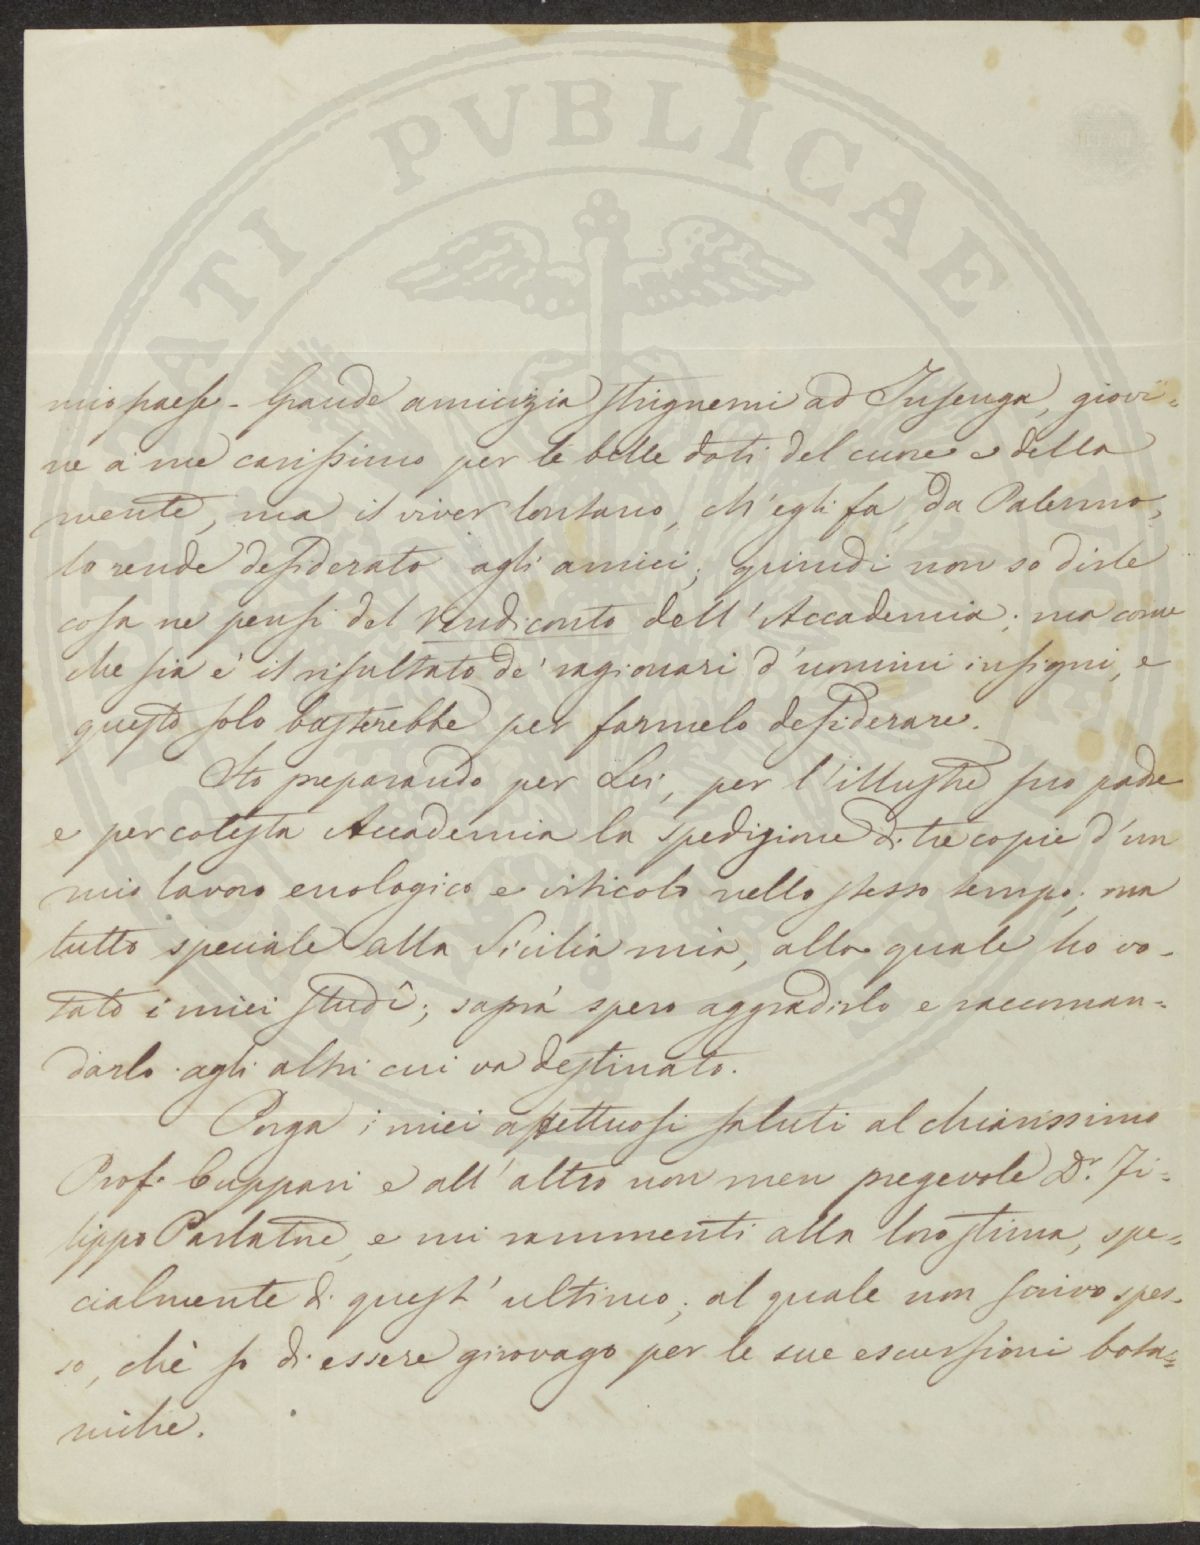 PUBLICAE
mio paese - Grande amicizia strignemi ad Insenga, giovi=
ne a me carissimo per le belle doti del cuore e della
mente, ma il viver lontano, ch'egli fa, da Palermo,
lo rende desiderato agli amici; quindi non so dirle
cosa ne pensi del Rendiconto dell'Accademia; ma come
che sia è il risultato de' ragionari d'uomini insigni, e
questo solo basterebbe per farmelo desiderare.
Sto preparando per Lei, per l'illustre suo padre
e per cotesta Accademia la spedizione di tre copie d'un
mio lavoro enologico e viticolo nello stesso tempo; ma
tutto speciale alla Sicilia mia, alla quale ho vo-
tato i miei studî; saprà spero aggradirlo e raccoman=
darlo agli altri cui va destinato.
Porga i miei affettuosi saluti al chiarissimo
Prof. Cuppari e all'altro non men pregevole Dr. Fi=
lippo Parlatore, e mi rammenti alla loro stima, spe=
cialmente di quest'ultimo; al quale non scrivo spes-
so, chè so di essere girovago per le sue escursioni bota=
niche.